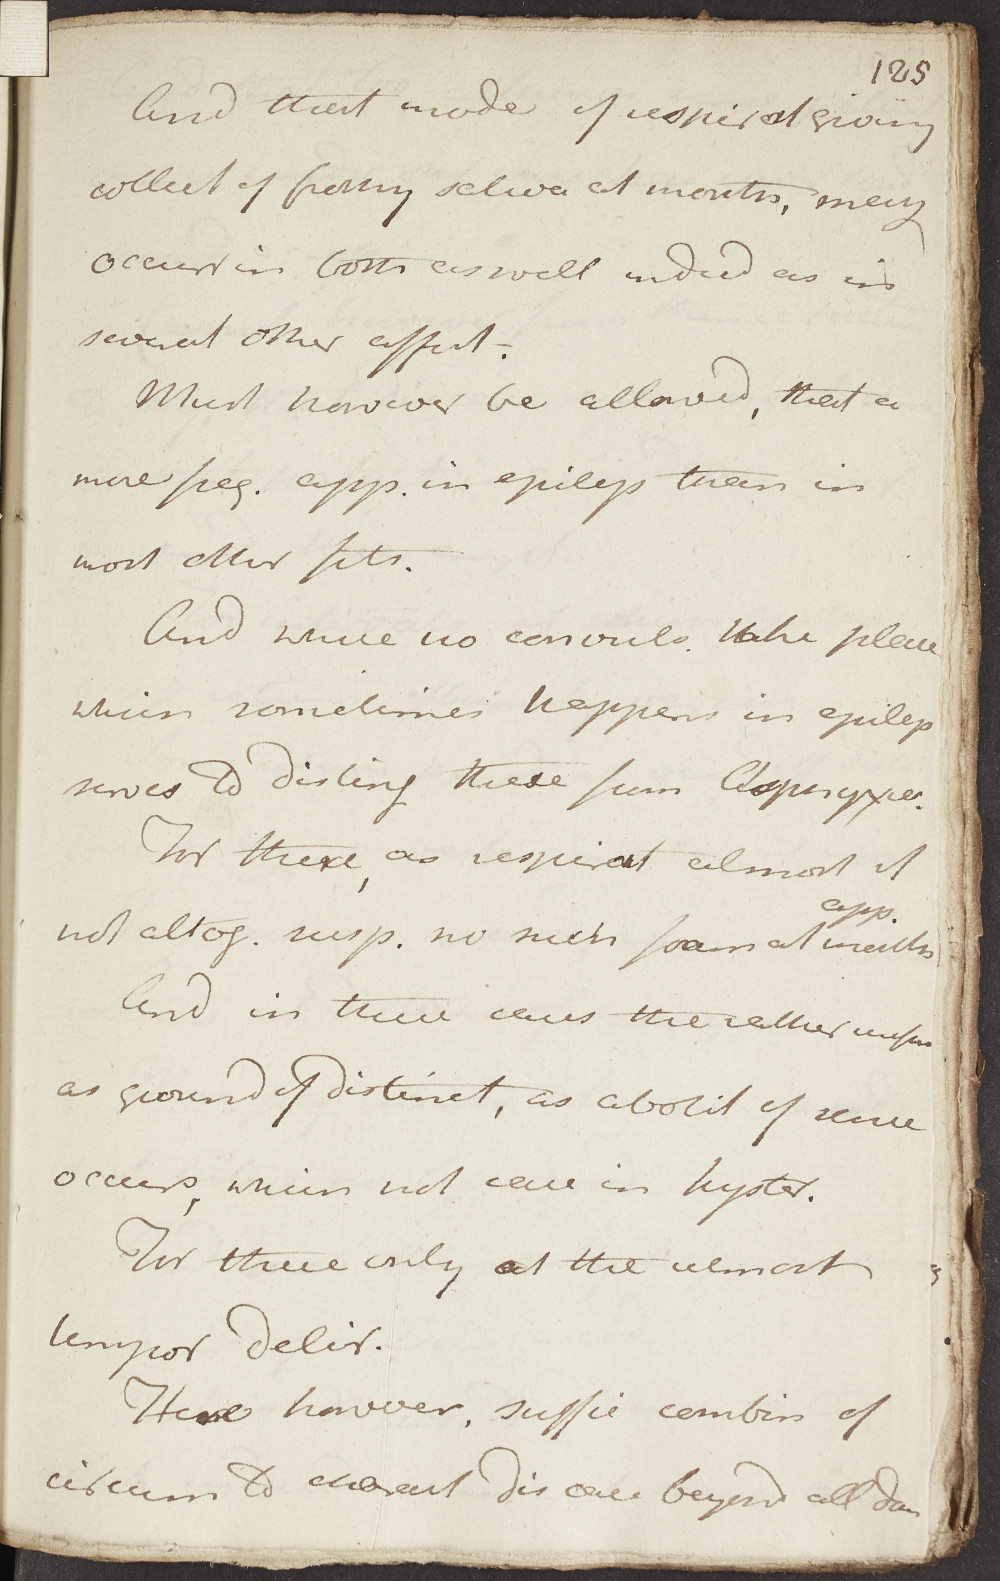 125
And that mode of respirat giving
collect of frothy saliva at mouth, may
occur in both as well indeed as in
several other affect -.
Must however be allowed, that a
more freq. app. in epilep than in
most other fits.
And where no convuls. take place
which sometimes happens in epilep
serves to disting these from Asphyxies.
For there, as respirat almost if
app.
not altog. susp. no such foam at mouth
And in these cases the rather
as ground of distinct, as abolit of sense
occurs, which not case in hyster.
For there only at the utmost
tempor delir.
Here however, suffic combin of
circum to charact dis case beyond all